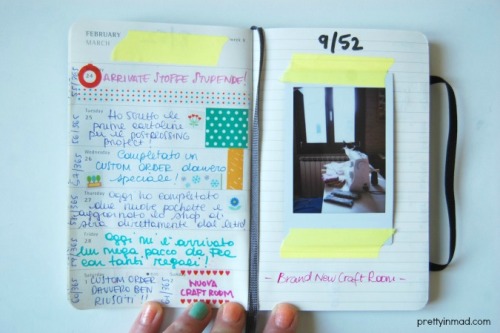 FEBRUARY
MARCH
WEEK 9
24
ARRIVATE STOFFE STUPENDE!
55/365
Tuesday
25
Ho scritto le
prime cartoline
per il postcrossing
project!
56/365
Wednesday
26
Completato un
CUSTOM ORDER davvero
speciale!
57/365
Thursday
27
Oggi ho completato
due nuove pochette e
aggiornato lo shop di
58/365
Friday
28
Oggi mi è arrivato
un mega pacco da Fee
con tanti regali!
59/365
Saturday
CUSTOM ORDER
DAVVERO BEN
RIUSCITI!!
NUOVA
CRAFT ROOM
9/52
- Brand New Craft Room -
prettyinmad.com